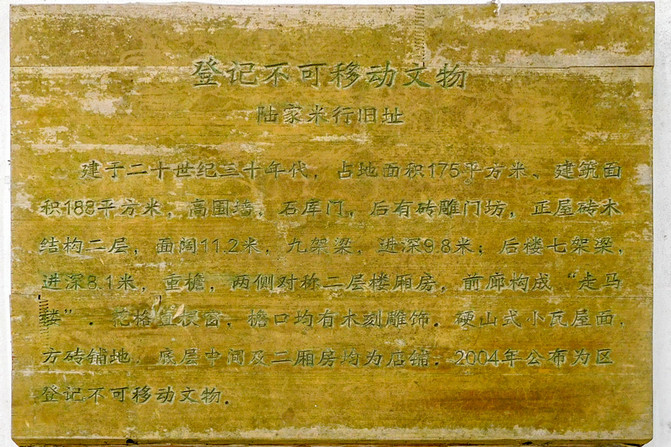 登记不可移动文物
陆家米行旧址
建于二十世纪三十年代，占地面积175平方米、建筑面
积188平方米，高围墙，石库门，后有砖雕门坊，正屋砖木
结构二层，面阔11.2米，九架梁，进深9.8米；后楼七架梁，
进深8.1米，重檐，两侧对称二层楼厢房，前廊构成“走马
楼”．花格窗，檐口均有木刻雕饰．硬山式小瓦屋面，
方砖铺地．底层中间及二厢房均为店铺．2004年公布为区
登记不可移动文物．